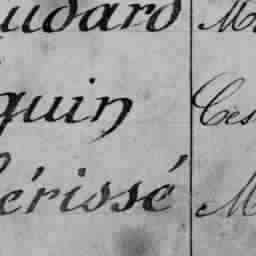 udard M
quin Ces
érissé M